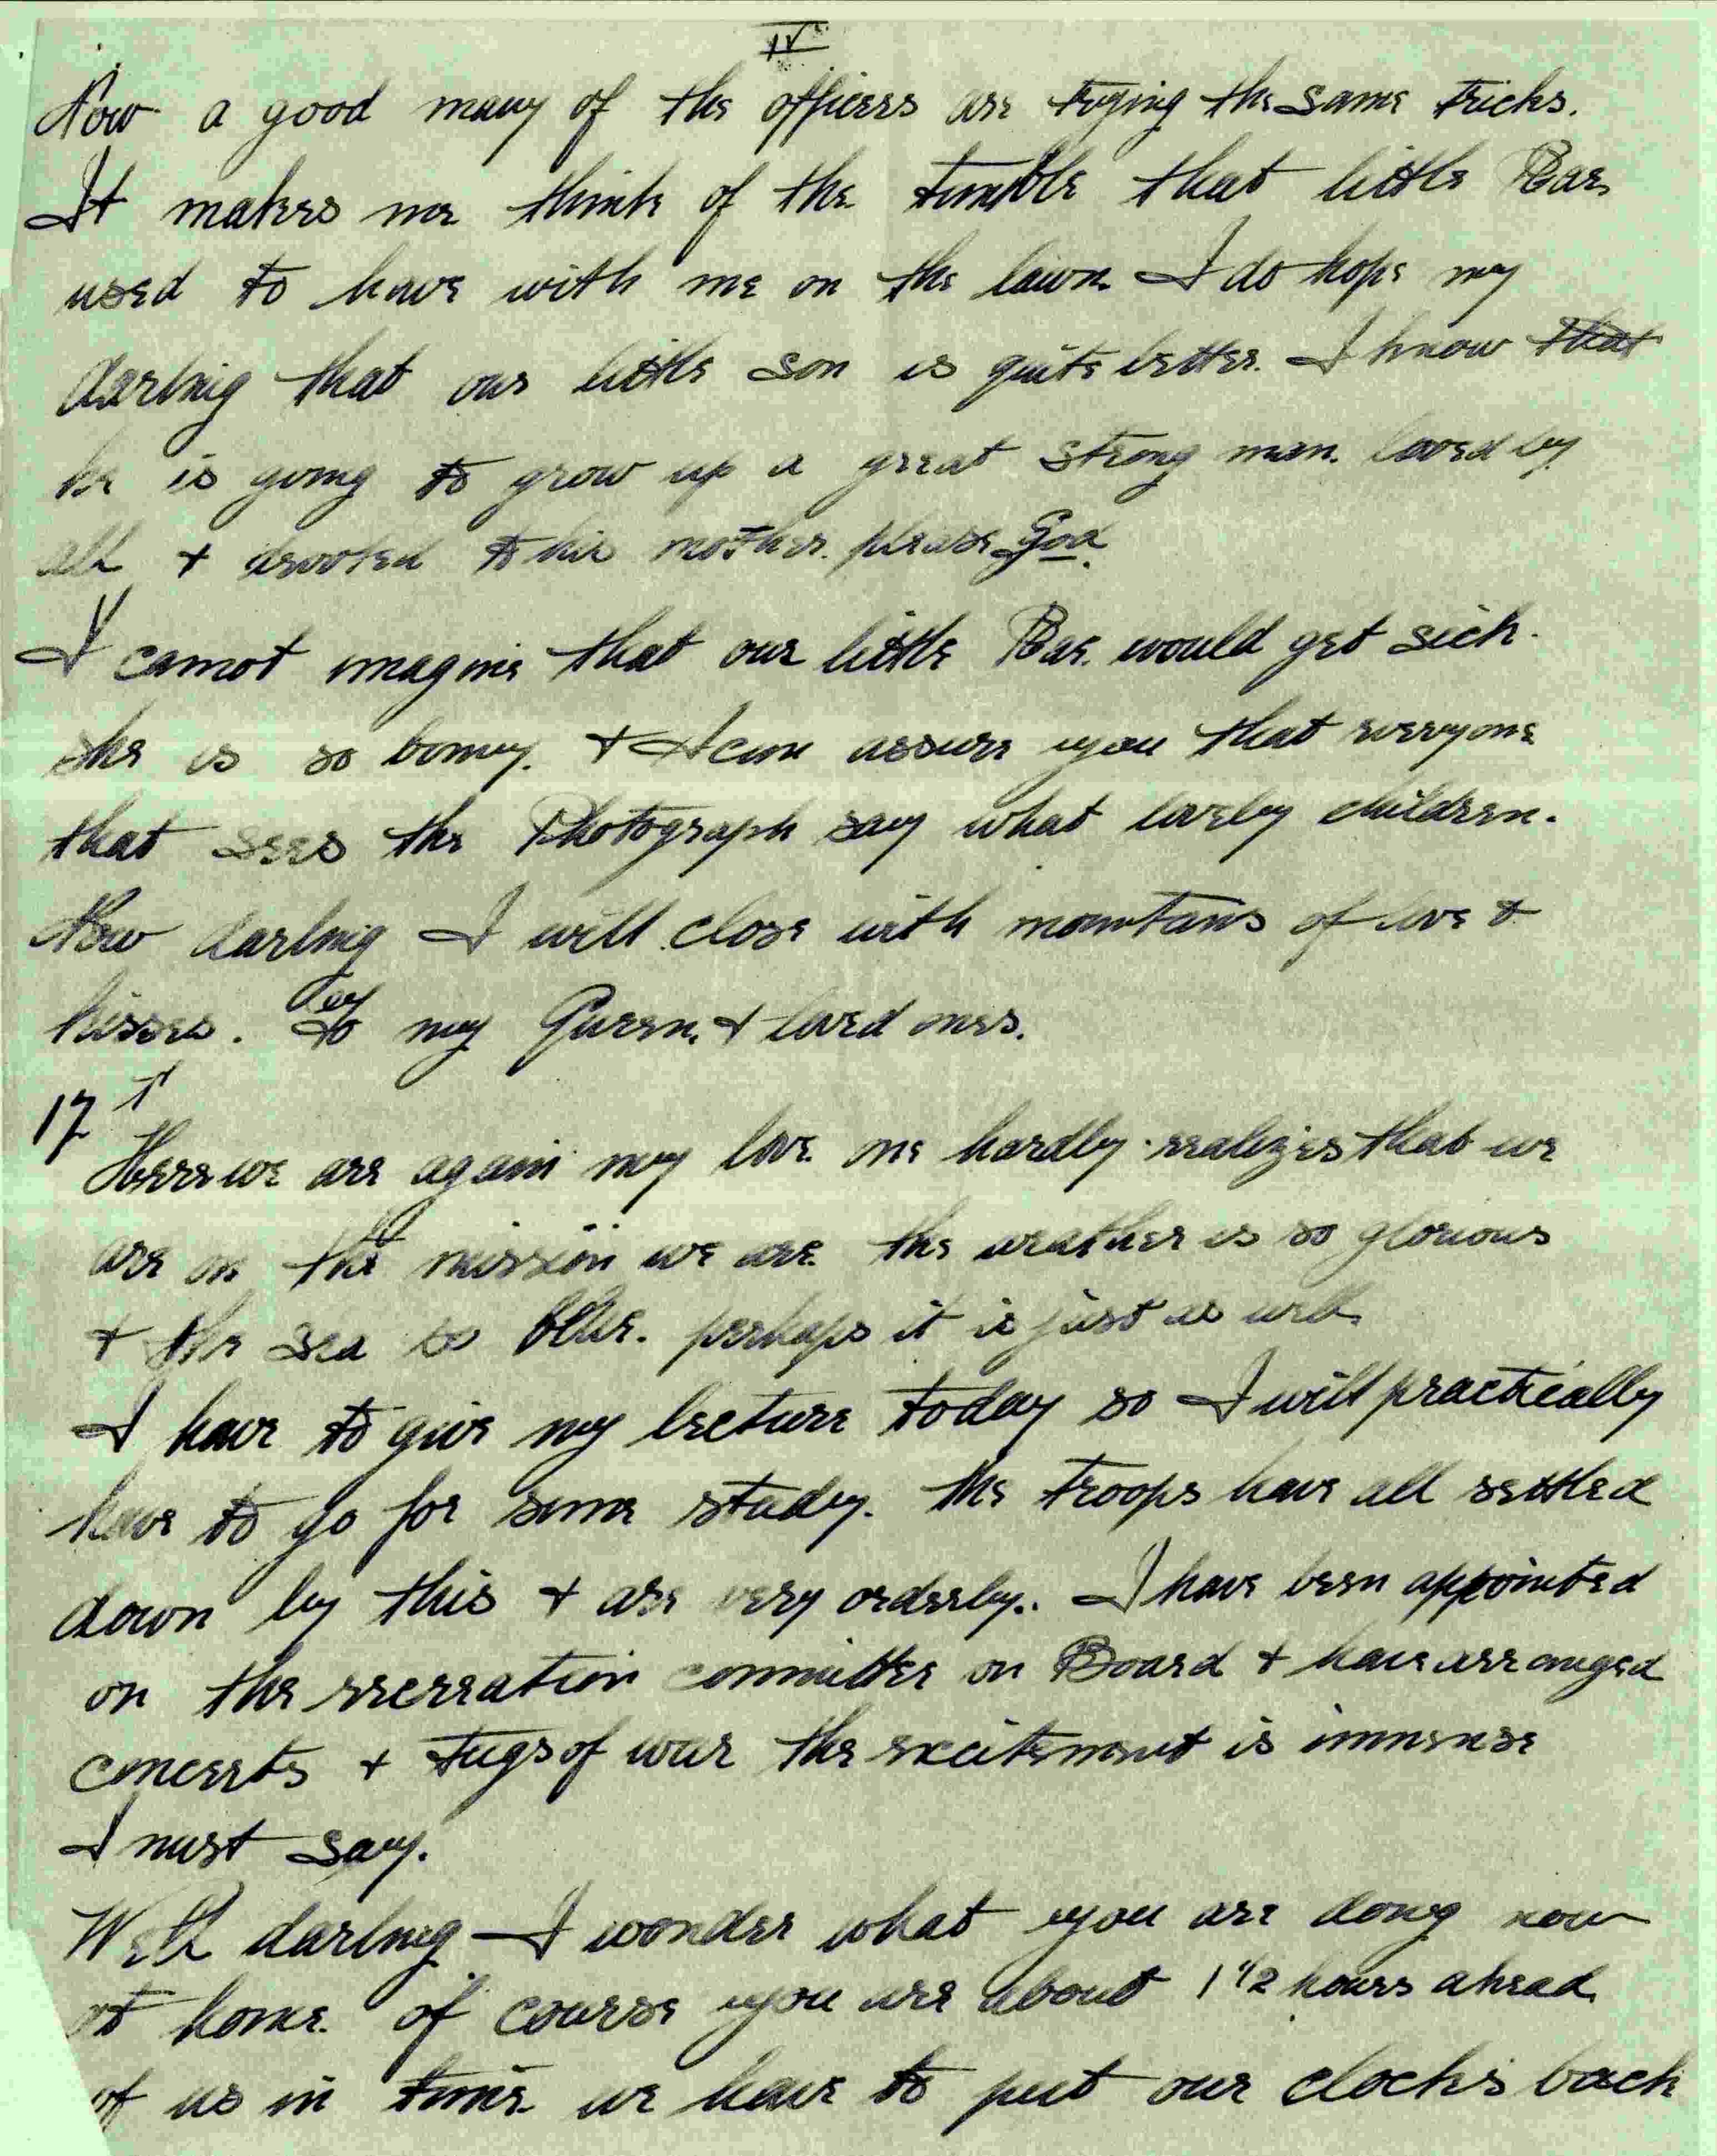 IV
Now a good many of the officers are trying the same tricks.
It makes me think of the tumble that little Bae
used to have with me on the lawn. I do hope my
darling that our little son is quite better. I know that
he is going to grow up a great strong man. loved by
all + devoted to his mother. please God.
I cannot imagine that our little Bae. would get sick.
she is so bonny. + I can assure you that everyone
that sees the Photograph say what lovely children.
Now darling I will close with mountains of love +
kisses. to my Queen. + loved ones.
17 T
Here we are again my love one hardly realizes that we
are on the mission we are. the weather is so glorious
+ the sea so blue. perhaps it is just as well.
I have to give my lecture today so I will practically
have to go for some study. The troops have all settled
down by this + are very orderly. I have been appointed
on the recreation committee on Board + have arranged
concerts + tugs of war the excitement is immense
I must say.
Well darling I wonder what you are doing now
at home. of course you are about 1 1/2 hours ahead
of us in time we have to put our clocks back